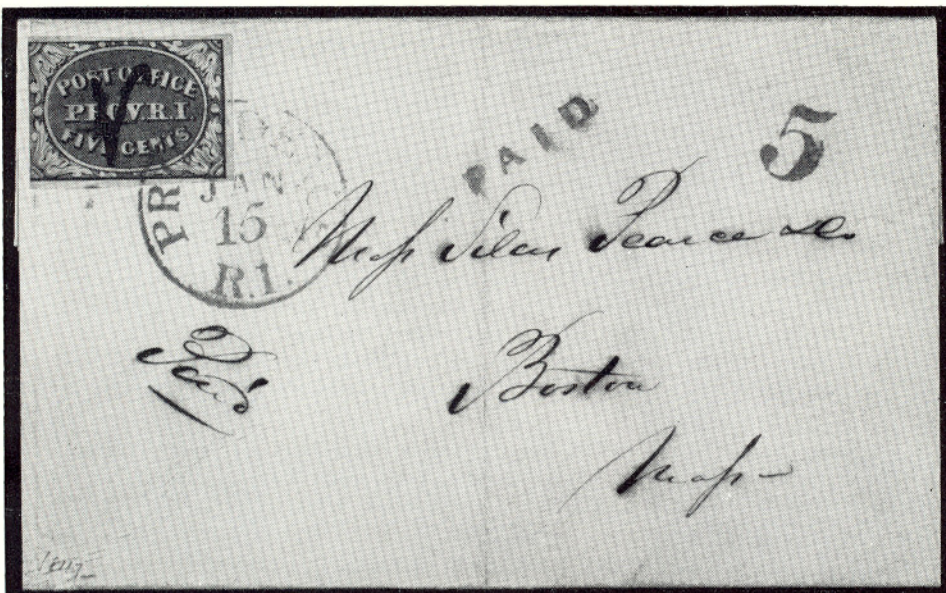 POST OFFICE
PROV. R.I.
FIVE CENTS
PAID
5
JAN
15
R.I.
Messrs Silas Pearce & Co.
Paid
Boston
Mass